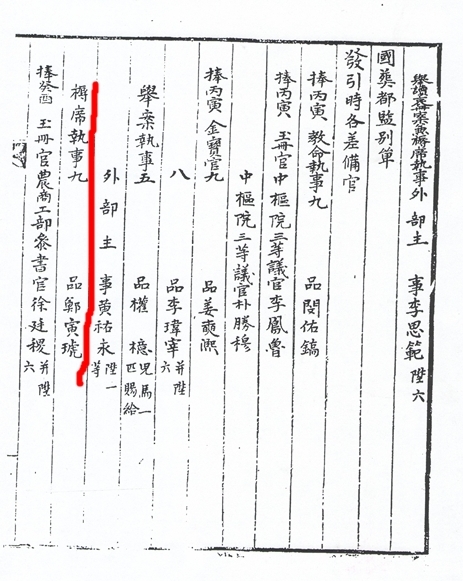 擧讀哀冊案與褥席執事外部主事李思範陞六
國葬都監別單
發引時各差備官
捧丙寅敎命執事九品閔佑鎬
捧丙寅玉冊官中樞院三等議官李鳳魯
中樞院三等議官朴勝穆
捧丙寅金寶官九品姜奭熙
八品李瑋宰幷陞六
擧案執事五品權檍兒馬一匹賜給
外部主事黃祐永陞一等
褥席執事九品鄭寅琥
捧癸酉玉冊官農商工部參書官徐廷稷幷陞六